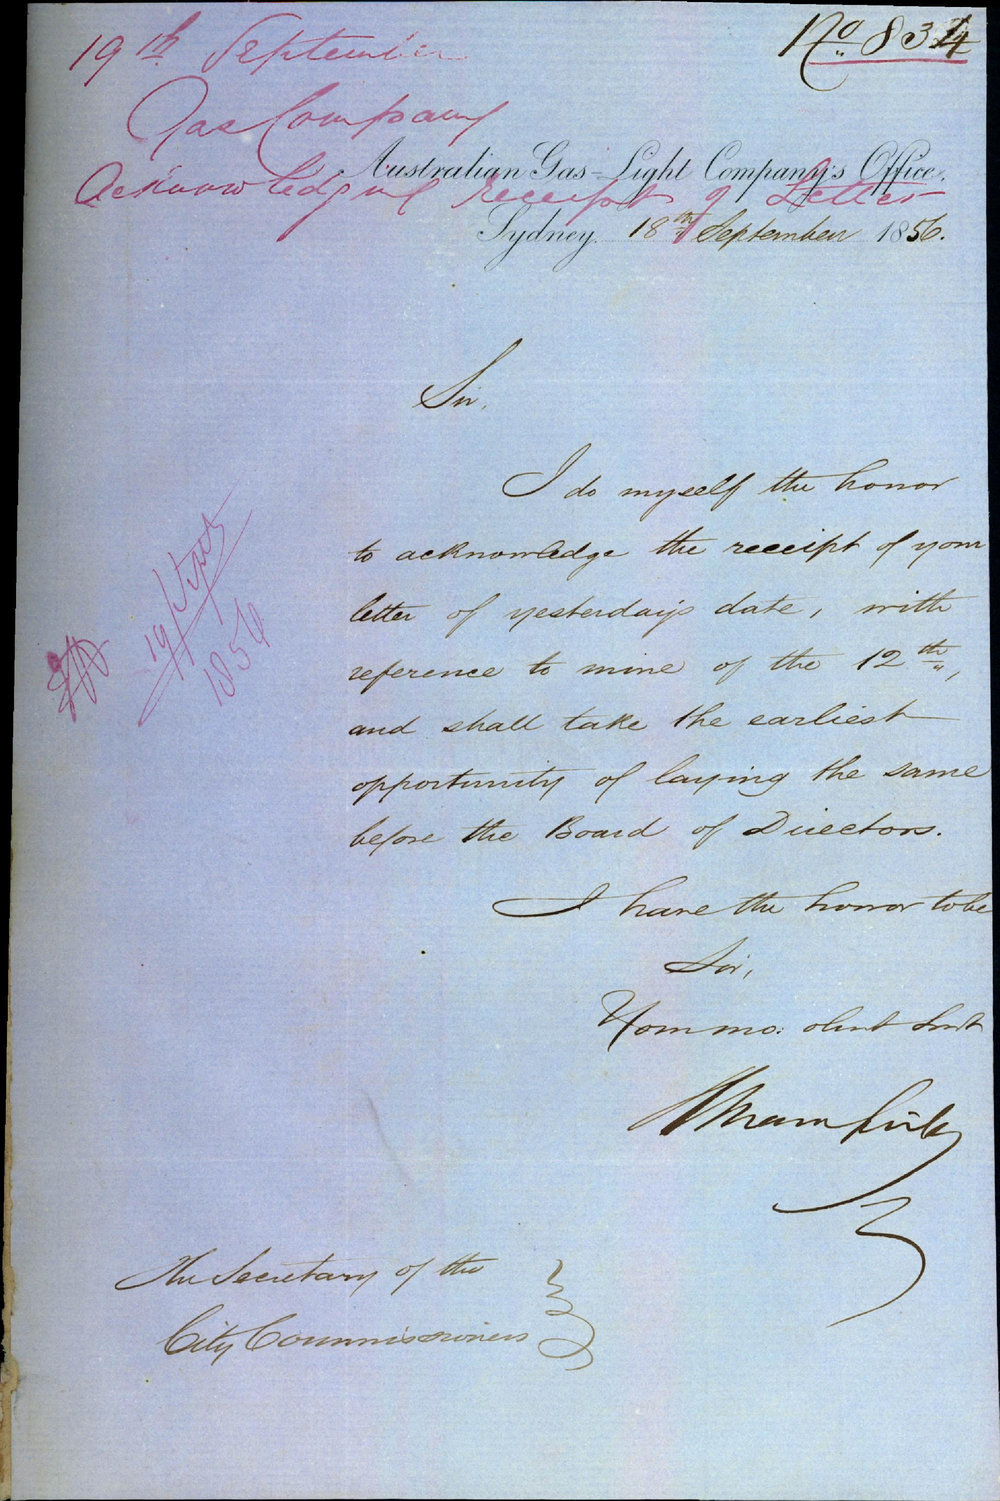 19th September
No 834
Gas Company
Acknowledging receipt of Letter
Australian Gas-Light Company's Office,
Sydney. 18th September 1856.
Sir,
I do myself the honor
to acknowledge the receipt of your
letter of yesterday's date, with
reference to mine of the 12th,
and shall take the earliest
opportunity of laying the same
before the Board of Directors.
I have the honor to be
Sir,
Your mo: obnt Srvt
19 Sept
1856
The Secretary of the
City Commissioners